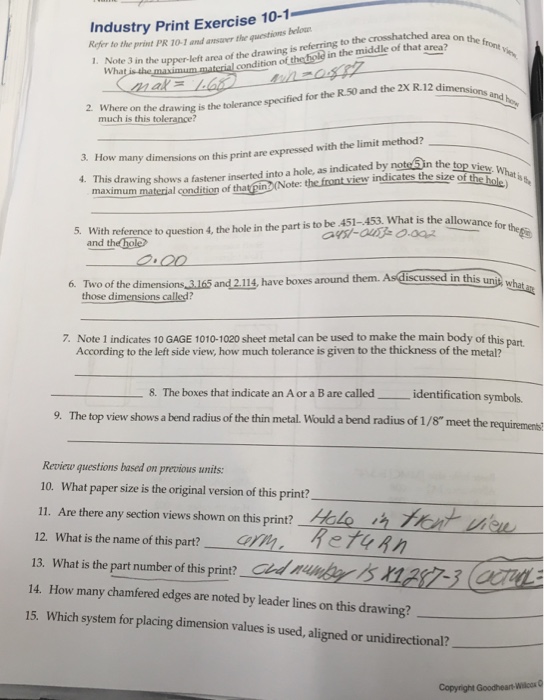 Industry Print Exercise 10-1
Refer to the print PR 10-1 and answer the questions below.
1. Note 3 in the upper-left area of the drawing is referring to the crosshatched area on the front view.
What is the maximum material condition of the hole in the middle of that area?
max =
2. Where on the drawing is the tolerance specified for the R.50 and the 2X R.12 dimensions and how
much is this tolerance?
3. How many dimensions on this print are expressed with the limit method?
4. This drawing shows a fastener inserted into a hole, as indicated by note 5 in the top view. What is the
maximum material condition of that pin? (Note: the front view indicates the size of the hole.)
5. With reference to question 4, the hole in the part is to be .451–.453. What is the allowance for the pin
and the hole?
0.00
6. Two of the dimensions, 3.165 and 2.114, have boxes around them. As discussed in this unit, what are
those dimensions called?
7. Note 1 indicates 10 GAGE 1010-1020 sheet metal can be used to make the main body of this part.
According to the left side view, how much tolerance is given to the thickness of the metal?
8. The boxes that indicate an A or a B are called ____ identification symbols.
9. The top view shows a bend radius of the thin metal. Would a bend radius of 1/8" meet the requirements?
Review questions based on previous units:
10. What paper size is the original version of this print?
11. Are there any section views shown on this print? Hole in front view
12. What is the name of this part? arm. Return
13. What is the part number of this print? number is X1287-3
14. How many chamfered edges are noted by leader lines on this drawing?
15. Which system for placing dimension values is used, aligned or unidirectional?
Copyright Goodheart-Willcox